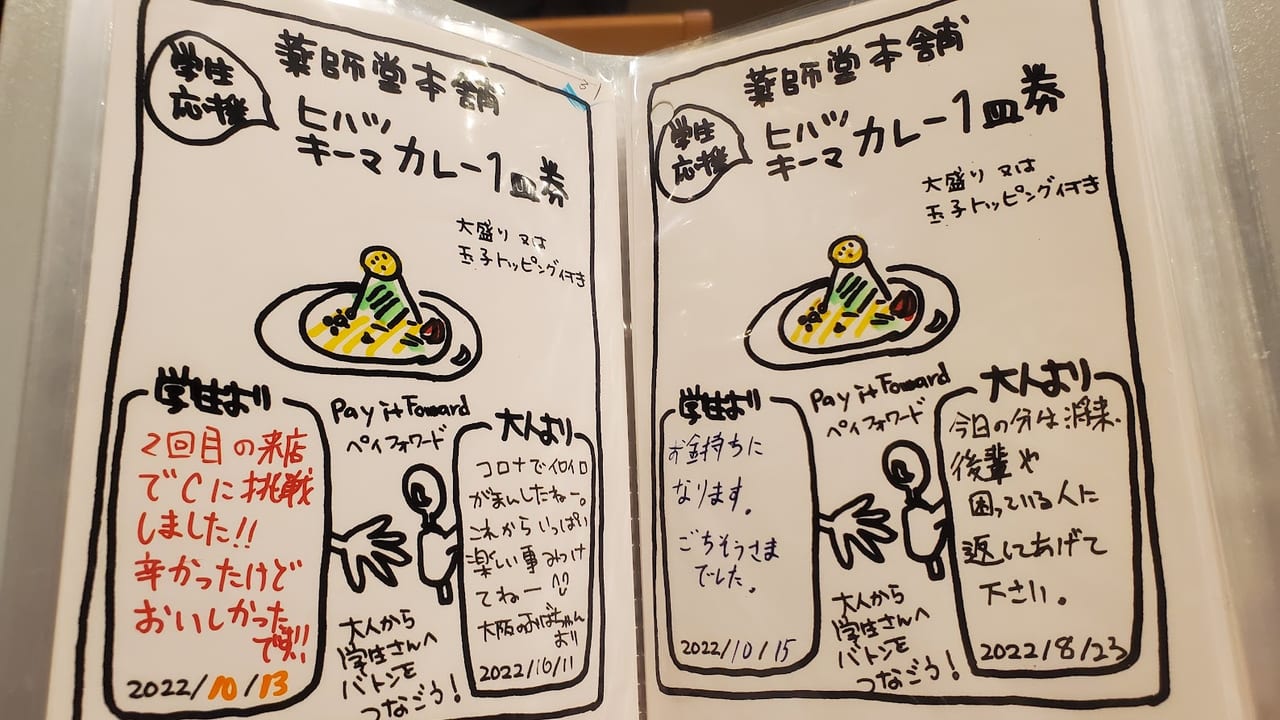 学生
応援
薬師堂本舗
ヒハツ
キーマカレー1皿券
大盛り又は
玉子トッピング付き
学生より
2回目の来店
でCに挑戦
しました!!
辛かったけど
おいしかった
です!!
2022/10/13
Pay it Foward
ペイフォワード
大人から
学生さんへ
バトンを
つなごう!
大人より
コロナでイロイロ
がまんしたねー。
これからいっぱい
楽しい事みつけ
てねー
大阪のおばちゃん
より
2022/10/11
学生
応援
薬師堂本舗
ヒハツ
キーマカレー1皿券
大盛り又は
玉子トッピング付き
学生より
お金持ちに
なります。
ごちそうさま
でした。
2022/10/15
Pay it Foward
ペイフォワード
大人から
学生さんへ
バトンを
つなごう!
大人より
今日の分は将来、
後輩や
困っている人に
返してあげて
下さい。
2022/8/23